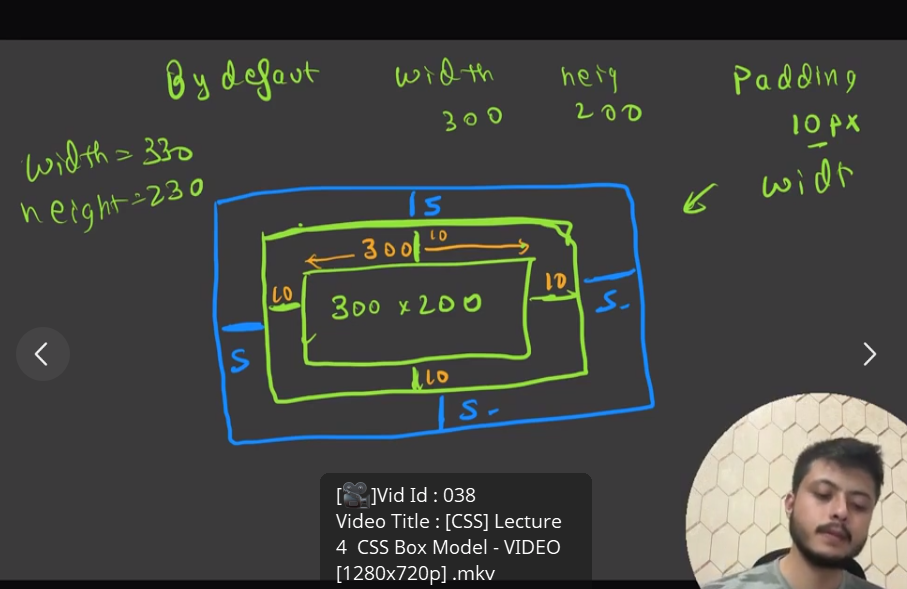 By defaut width heig Padding
300 200 10px
width = 330 widt
height = 230
15
300 10
10 300 x 200 10 5-
5
10
5-
[🎥]Vid Id : 038
Video Title : [CSS] Lecture
4 CSS Box Model - VIDEO
[1280x720p] .mkv